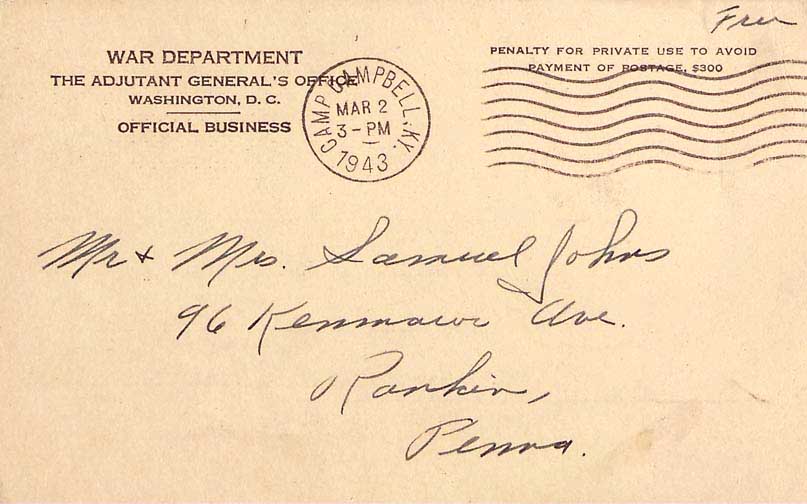 Free
WAR DEPARTMENT
THE ADJUTANT GENERAL'S OFFICE
WASHINGTON, D. C.
OFFICIAL BUSINESS
CAMP CAMPBELL, KY.
MAR 2
3-PM
1943
PENALTY FOR PRIVATE USE TO AVOID
PAYMENT OF POSTAGE, $300
Mr & Mrs. Samuel Johns
96 Kenmawr Ave.
Rankin,
Penna.